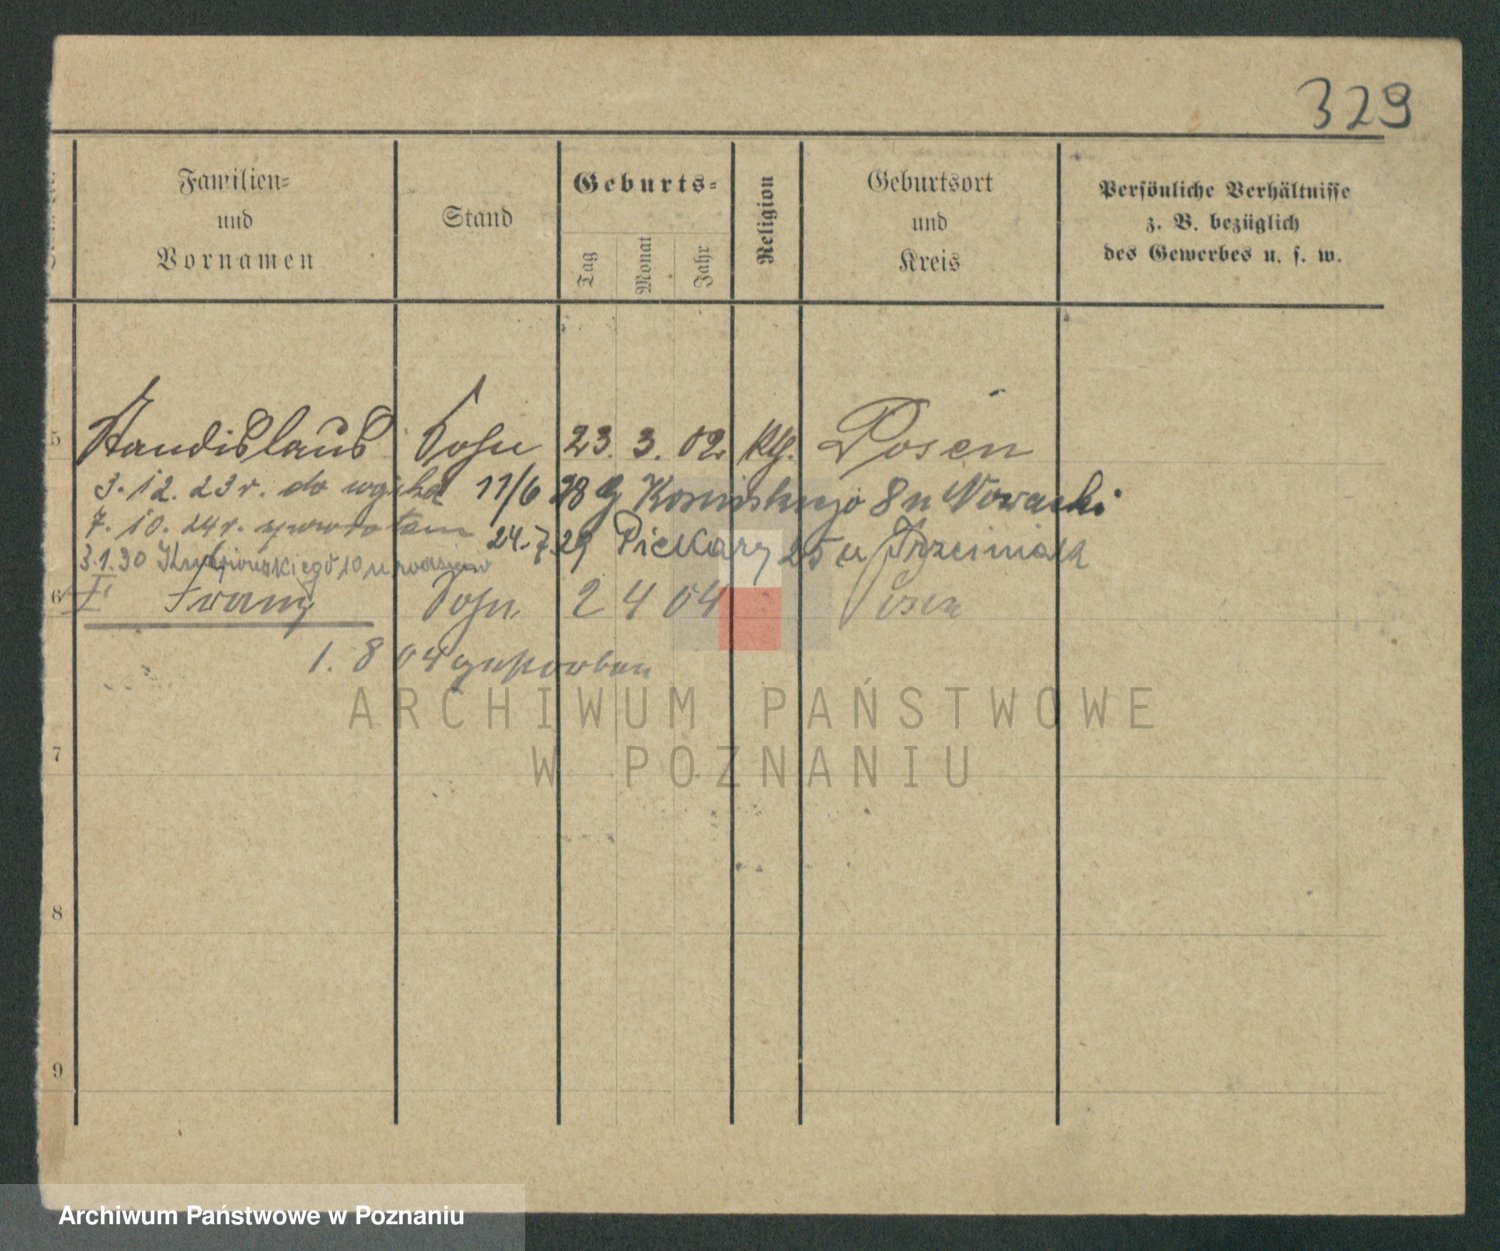 329
Familien= und Vornamen
Stand
Geburts=
Tag
Monat
Jahr
Religion
Geburtsort und Kreis
Persönliche Verhältnisse
z. B. bezüglich
des Gewerbes u. s. w.
5 Standislaus Sohn 23. 3. 02. kth. Posen
3. 12. 23 r. do wojska 11/6 28 G Kosinskiego 8 u Nowacki
7. 10. 24 r. z powrotem 24. 7. 29 Piekary 25 u Trzciniaka
3.1.30 10 u rodziców
6 Franz Sohn 2 4 04 Posen
1. 8 04 gestorben
7
8
9
ARCHIWUM PAŃSTWOWE
W POZNANIU
Archiwum Państwowe w Poznaniu